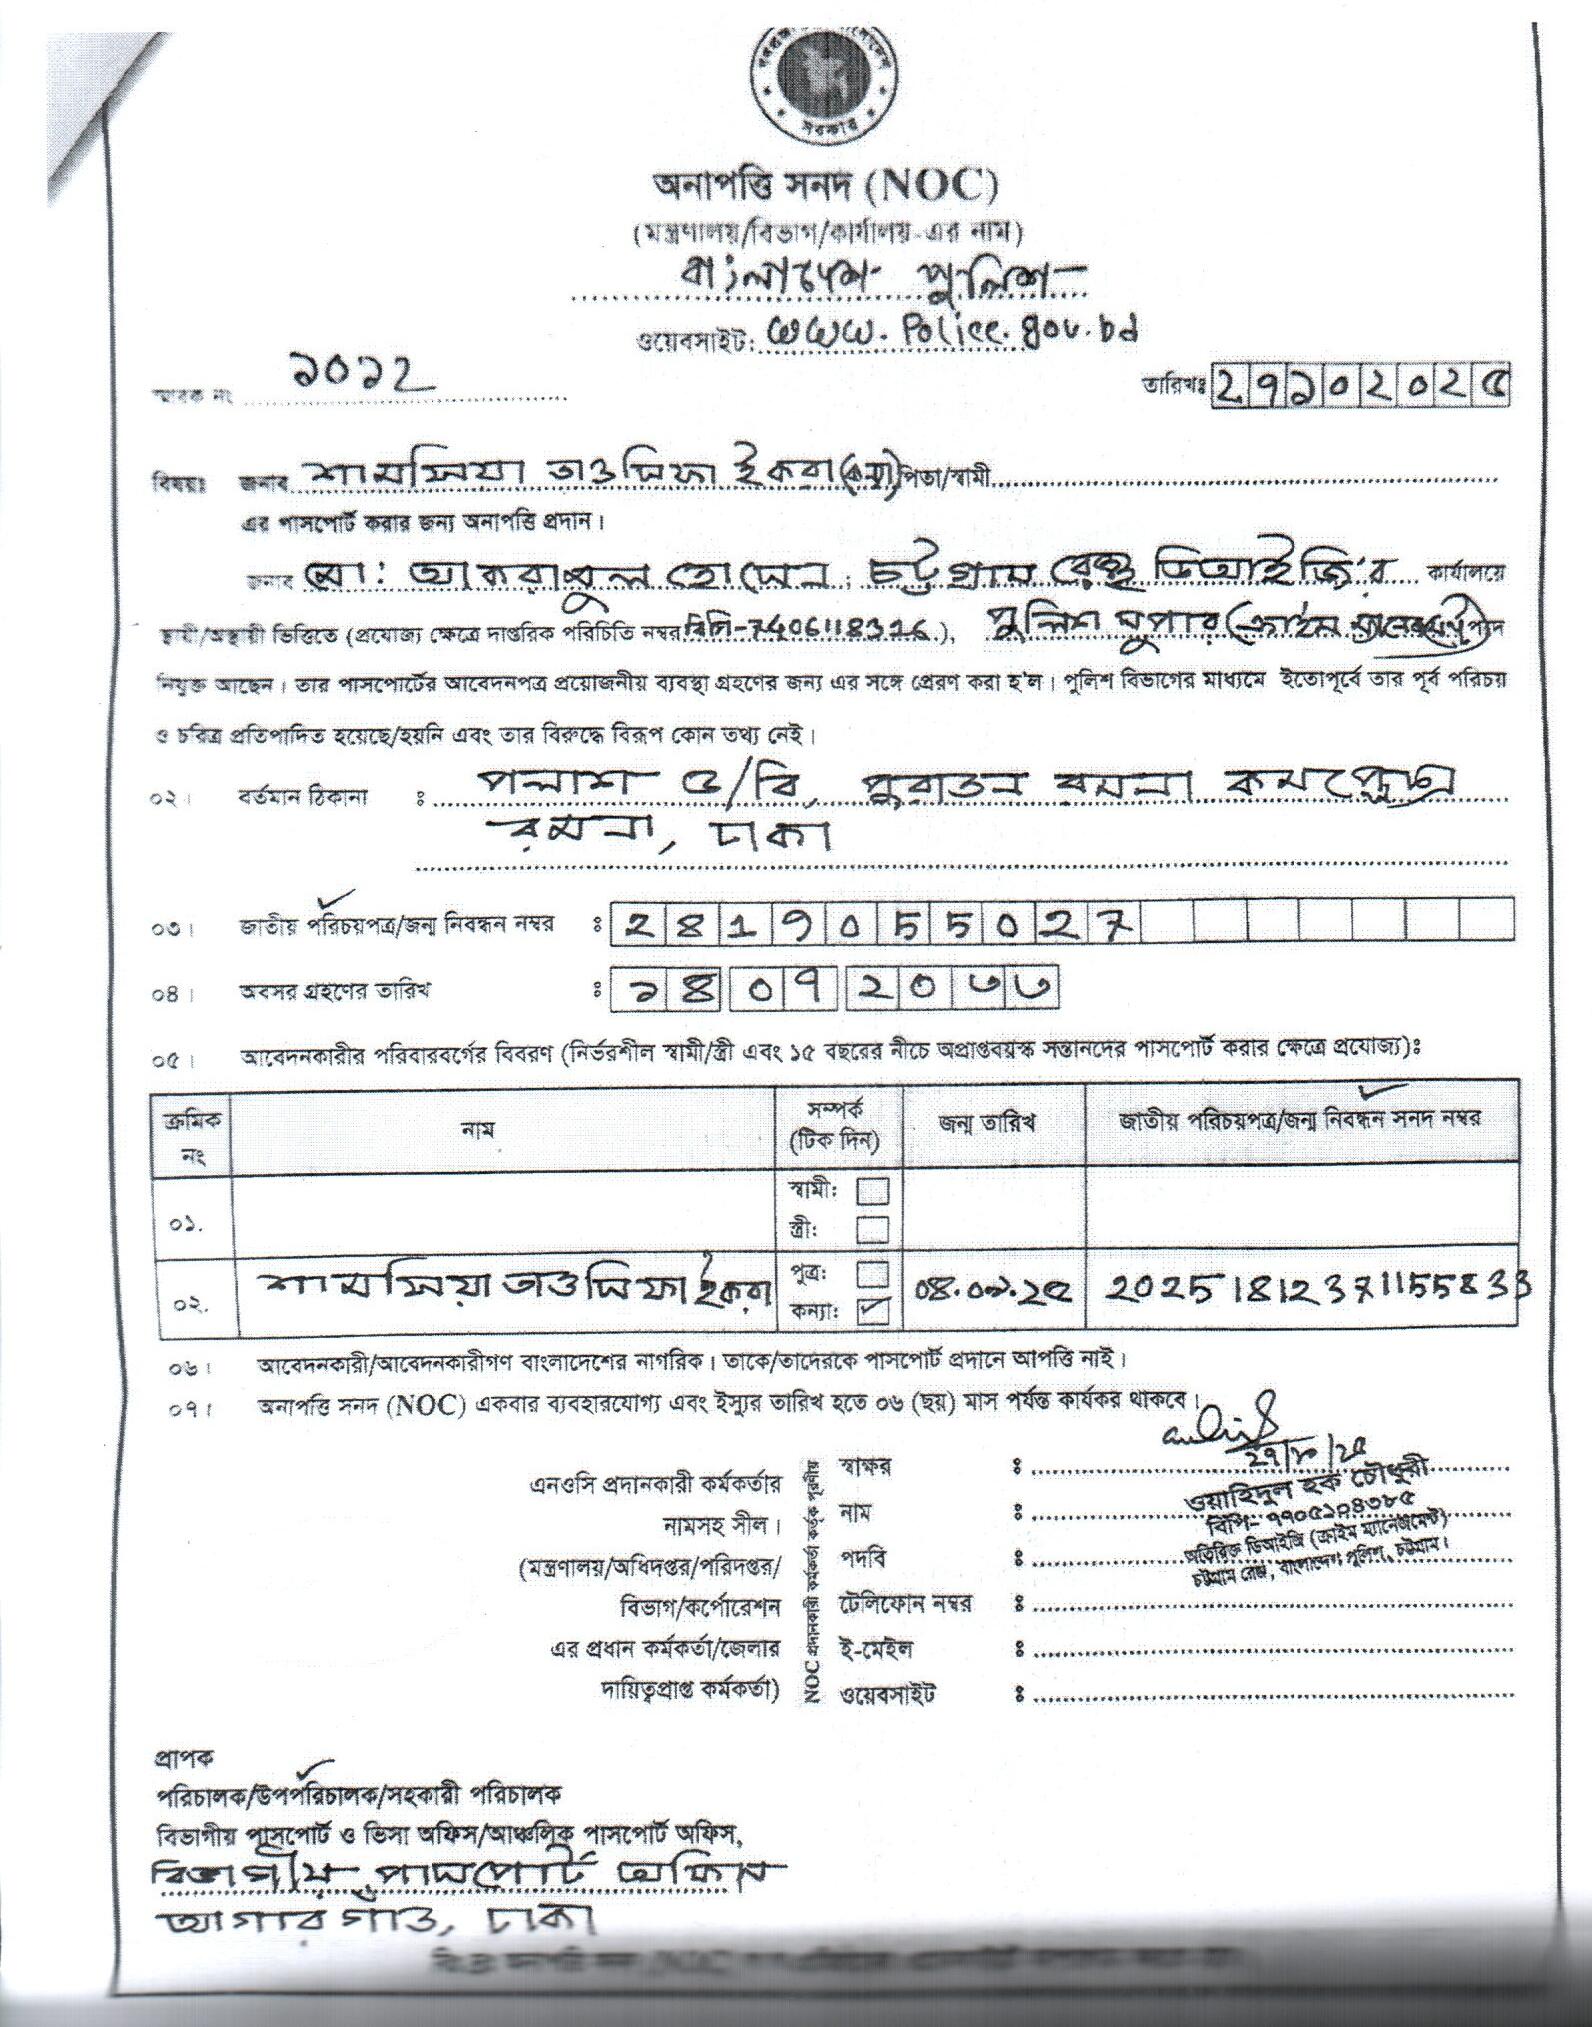 সরকার
অনাপত্তি সনদ (NOC)
(মন্ত্রণালয়/বিভাগ/কার্যালয়-এর নাম)
বাংলাদেশ পুলিশ
ওয়েবসাইট: www.police.gov.bd
স্মারক নং ১০১২
তারিখঃ ২৭১০২০২৫
বিষয়ঃ জনাব শামসিয়া তাওসিফা ইকরা (কন্যা) পিতা/স্বামী
এর পাসপোর্ট করার জন্য অনাপত্তি প্রদান।
জনাব মো: আকরামুল হোসেন, চট্টগ্রাম রেঞ্জ ডিআইজি'র কার্যালয়ে
স্থায়ী/অস্থায়ী ভিত্তিতে (প্রযোজ্য ক্ষেত্রে দাপ্তরিক পরিচিতি নম্বর বিপি-7406118326), পুলিশ সুপার (ক্রাইম ম্যানেজমেন্ট) পদে
নিযুক্ত আছেন। তার পাসপোর্টের আবেদনপত্র প্রয়োজনীয় ব্যবস্থা গ্রহণের জন্য এর সঙ্গে প্রেরণ করা হ'ল। পুলিশ বিভাগের মাধ্যমে ইতোপূর্বে তার পূর্ব পরিচয়
ও চরিত্র প্রতিপাদিত হয়েছে/হয়নি এবং তার বিরুদ্ধে বিরূপ কোন তথ্য নেই।
০২। বর্তমান ঠিকানা ঃ পলাশ ৫/বি, পুরাতন রমনা কমপ্লেক্স
রমনা, ঢাকা
০৩। জাতীয় পরিচয়পত্র/জন্ম নিবন্ধন নম্বর ঃ 2819055027
০৪। অবসর গ্রহণের তারিখ ঃ ১৪ ০৭ ২০৩৩
০৫। আবেদনকারীর পরিবারবর্গের বিবরণ (নির্ভরশীল স্বামী/স্ত্রী এবং ১৫ বছরের নীচে অপ্রাপ্তবয়স্ক সন্তানদের পাসপোর্ট করার ক্ষেত্রে প্রযোজ্য)ঃ
ক্রমিক নং নাম সম্পর্ক (টিক দিন) জন্ম তারিখ জাতীয় পরিচয়পত্র/জন্ম নিবন্ধন সনদ নম্বর
০১. স্বামী:
স্ত্রী:
০২. শামসিয়া তাওসিফা ইকরা পুত্র: কন্যা: ✓ ০৪.০৯.২৫ 20251812371155833
০৬। আবেদনকারী/আবেদনকারীগণ বাংলাদেশের নাগরিক। তাকে/তাদেরকে পাসপোর্ট প্রদানে আপত্তি নাই।
০৭। অনাপত্তি সনদ (NOC) একবার ব্যবহারযোগ্য এবং ইস্যুর তারিখ হতে ০৬ (ছয়) মাস পর্যন্ত কার্যকর থাকবে।
২৭/১০/২৫
এনওসি প্রদানকারী কর্মকর্তার
নামসহ সীল।
(মন্ত্রণালয়/অধিদপ্তর/পরিদপ্তর/
বিভাগ/কর্পোরেশন
এর প্রধান কর্মকর্তা/জেলার
দায়িত্বপ্রাপ্ত কর্মকর্তা)
NOC প্রদানকারী কর্মকর্তা কর্তৃক পূরণীয়
স্বাক্ষর ঃ
নাম ঃ
পদবি ঃ
টেলিফোন নম্বর ঃ
ই-মেইল ঃ
ওয়েবসাইট ঃ
ওয়াহিদুল হক চৌধুরী
বিপি- ৭৭০৫১০৪৩৮৫
অতিরিক্ত ডিআইজি (ক্রাইম ম্যানেজমেন্ট)
চট্টগ্রাম রেঞ্জ, বাংলাদেশ পুলিশ, চট্টগ্রাম।
প্রাপক
পরিচালক/উপপরিচালক/সহকারী পরিচালক
বিভাগীয় পাসপোর্ট ও ভিসা অফিস/আঞ্চলিক পাসপোর্ট অফিস,
বিভাগীয় পাসপোর্ট অফিস
আগারগাঁও, ঢাকা